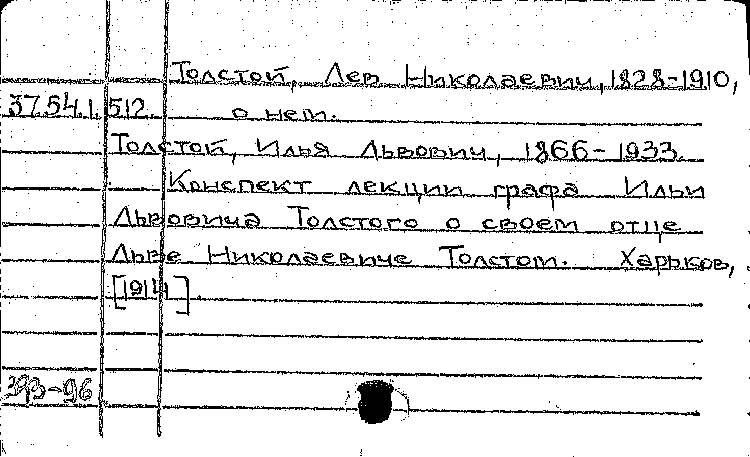 Толстой, Лев Николаевич, 1828-1910,
37.54.1.512. о нем.
Толстой, Илья Львович, 1866-1933.
Конспект лекции графа Ильи
Львовича Толстого о своем отце
Льве Николаевиче Толстом. Харьков,
[1914].
393-96